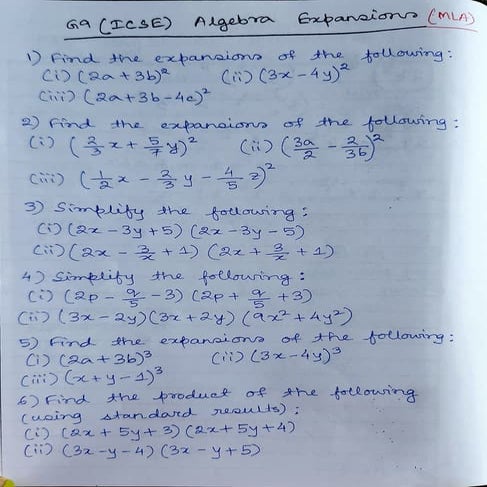 G9 (ICSE) Algebra Expansions (MLA)
1) Find the expansions of the following:
(i) (2a + 3b)² (ii) (3x - 4y)²
(iii) (2a + 3b - 4c)²
2) Find the expansions of the following:
(i) (2/3 x + 5/7 y)² (ii) (3a/2 - 2/3b)²
(iii) (1/2 x - 2/3 y - 4/5 z)²
3) Simplify the following:
(i) (2x - 3y + 5) (2x - 3y - 5)
(ii) (2x - 3/x + 1) (2x + 3/x + 1)
4) Simplify the following:
(i) (2p - q/5 - 3) (2p + q/5 + 3)
(ii) (3x - 2y) (3x + 2y) (9x² + 4y²)
5) Find the expansions of the following:
(i) (2a + 3b)³ (ii) (3x - 4y)³
(iii) (x + y - 1)³
6) Find the product of the following
(using standard results):
(i) (2x + 5y + 3) (2x + 5y + 4)
(ii) (3x - y - 4) (3x - y + 5)